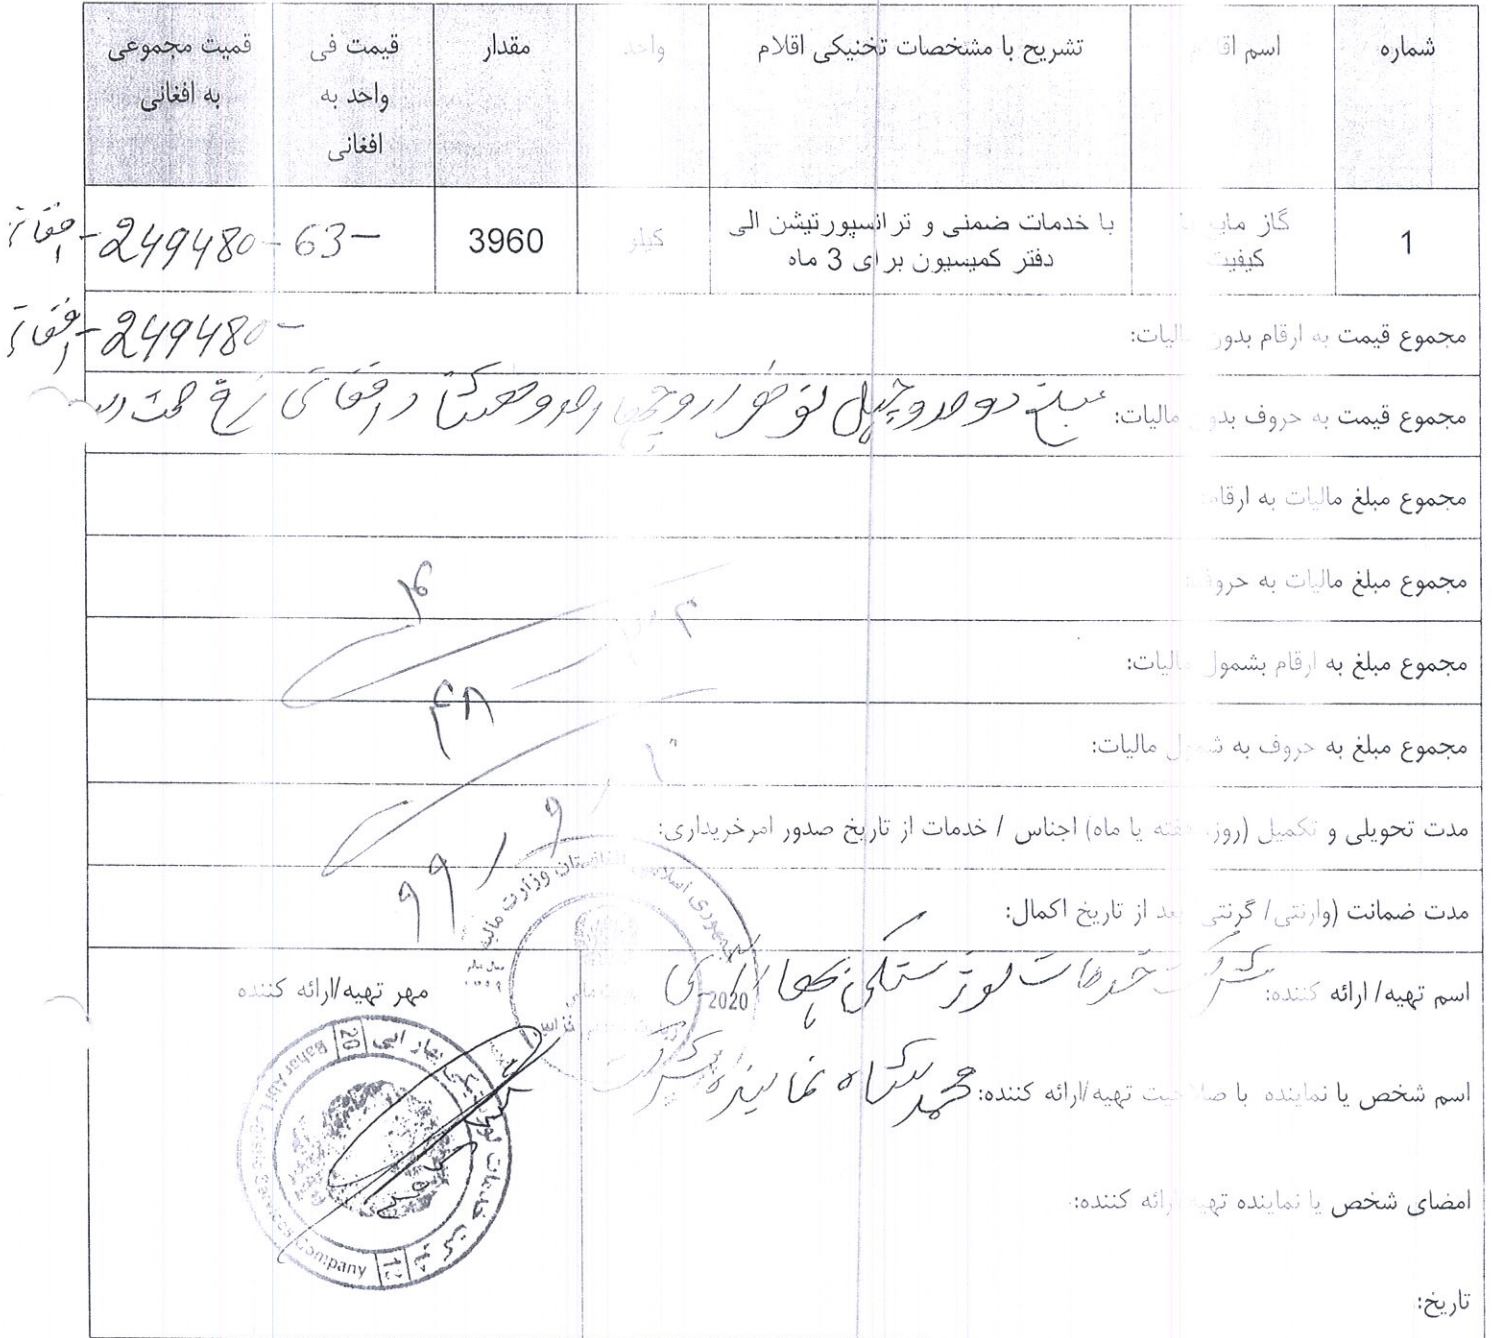 شماره
اسم
تشریح با مشخصات تخنیکی اقلام
واحد
مقدار
قیمت فی واحد به افغانی
قمیت مجموعی به افغانی
1
گاز مایع
کیفیت
با خدمات ضمنی و ترانسپورتیشن الی
دفتر کمیسیون برای 3 ماه
کیلو
3960
63-
249480- افغانی
مجموع قیمت به ارقام بدون مالیات: 249480- افغانی
مجموع قیمت به حروف بدون مالیات: مبلغ دوصدو چهل نو هزار و چهارصدو هشتاد افغانی
مجموع مبلغ مالیات به ارقام:
مجموع مبلغ مالیات به حروف:
مجموع مبلغ به ارقام بشمول مالیات:
مجموع مبلغ به حروف به شمول مالیات:
مدت تحویلی و تکمیل (روز، هفته یا ماه) اجناس / خدمات از تاریخ صدور امرخریداری:
مدت ضمانت (وارنتی/ گرنتی) بعد از تاریخ اکمال:
اسم تهیه/ ارائه کننده: شرکت خدمات لوژستیکی بهار ابی
مهر تهیه/ارائه کننده
اسم شخص یا نماینده با صلاحیت تهیه/ارائه کننده: محمد نماینده شرکت
امضای شخص یا نماینده تهیه/ارائه کننده:
تاریخ:
جمهوری اسلامی افغانستان وزارت مالیه
2020
شرکت خدمات لوژستیکی بهار ابی
20 12
Bahar Abi Logistic Services Company